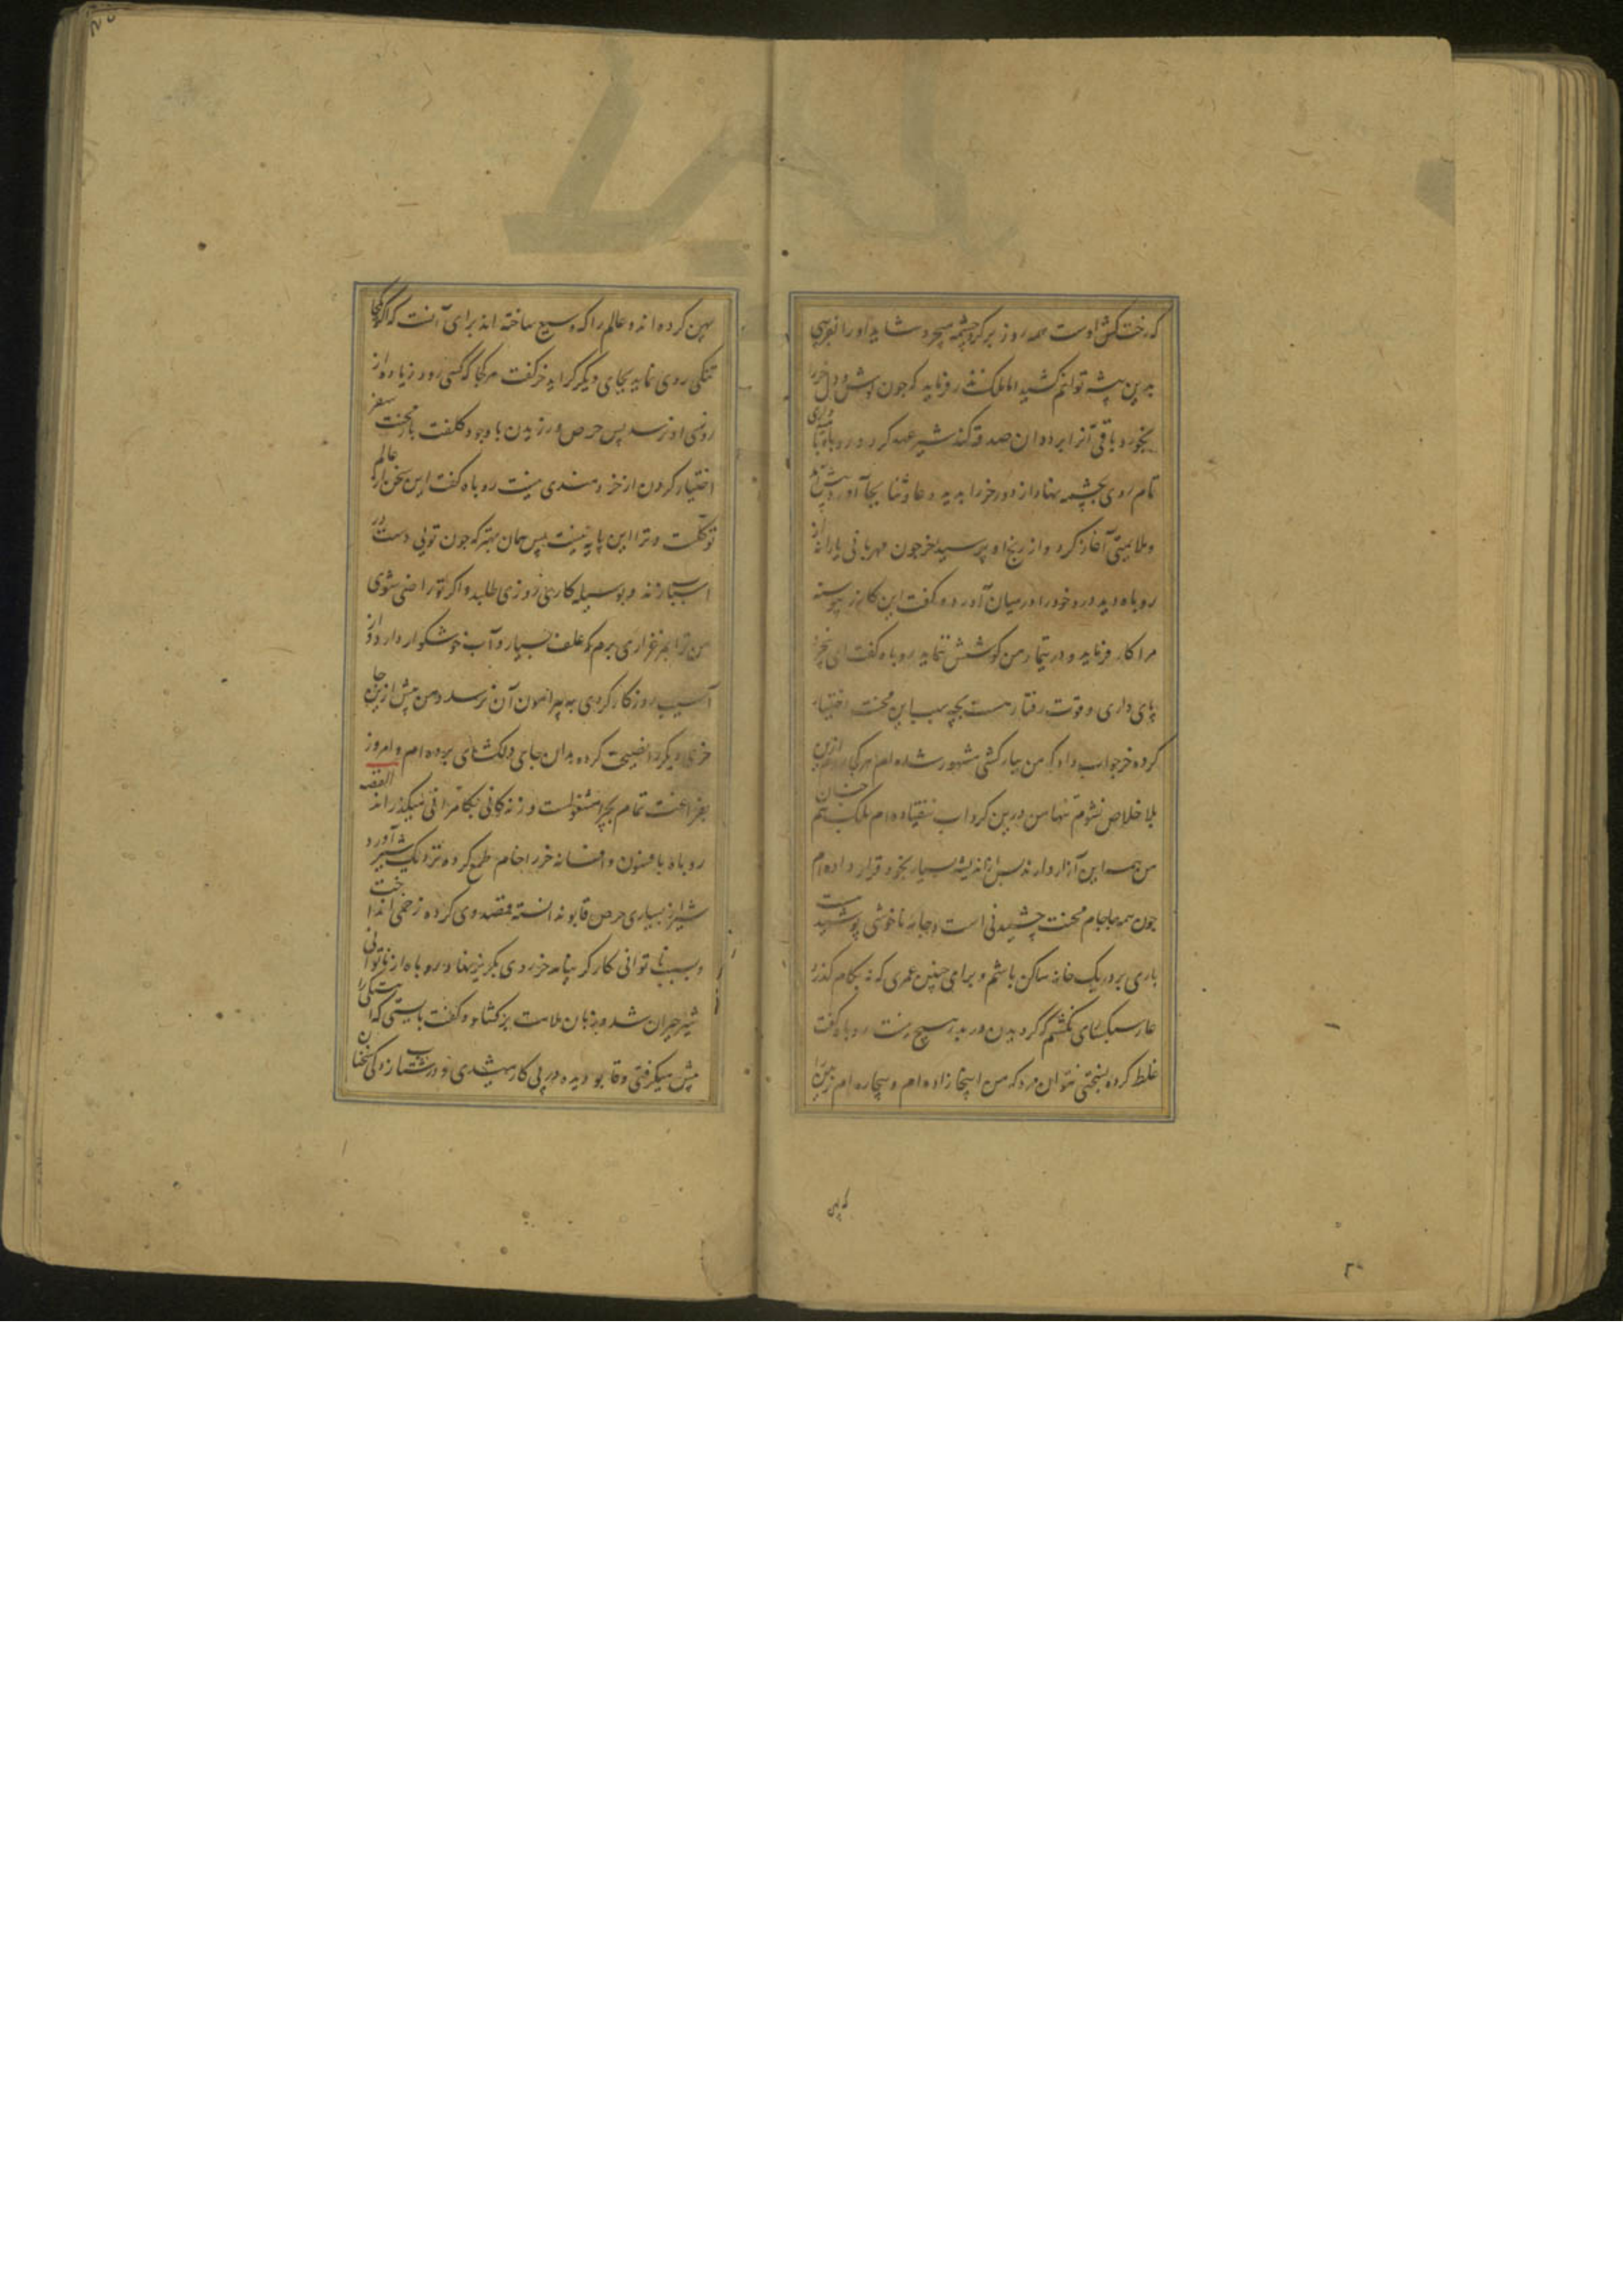 که رخت کش اوست همه روز بر گرد چشمه میچرد شاید او را بفریبی
بدین بیشه توانم کشید اما ملک نذر فرماید که چون گوش و دل خر را
بخورد باقی آنرا بر ددان صدقه کند شیر عهد کرد و روباه با
تمام روی بچشمه نهاد از دور خر را بدید دعا و ثنا بجا آورد
و ملایمتی آغاز کرد و از رنج او پرسید خر چون مهربانی یارانه از
روباه دید درد خود را در میان آورد و گفت این کازر پیوسته
مرا کار فرماید و در تیمار من کوشش ننماید روباه گفت ای
پای داری و قوت رفتار هست بچه سبب این محنت اختیار
کرده خر جواب داد که من ببارکشی مشهور شده ام هر کجا روم ازین
بلا خلاص نشوم تنها من درین گرداب نیفتاده ام بلکه
من همه این آزار دارند پس از اندیشه بسیار بخود قرار داده ام
چون همه جا جام محنت چشیدنی است و جامه ناخوشی پوشیدنی
باری بر در یک خانه ساکن باشم و برای چنین عمری که نه بکام گذرد
عار سبکپای نکشم که گردیدن در بدر هیچ نیست روباه گفت
غلط کرده بسختی نتوان مرد که من اینجا زاده ام و بیچاره ام زمین را
که پی
پهن کرده اند و عالم را که وسیع ساخته اند برای آنست که اگر کجا
تنگی روی نماید بجای دیگر گراید خر گفت هر کجا که کسی رود زیاده از
روزی او نرسد پس حرص ورزیدن با وجود کلفت بار محنت سفر
اختیار کردن از خردمندی نیست روباه گفت این سخن از عالم
توکلست و ترا این پایه نیست پس همان بهتر که چون تویی دست در
اسباب زند و بوسیله کاری روزی طلبد و اگر تو راضی شوی
من ترا بمرغزاری برم که علف بسیار و آب خوشگوار دارد و از
آسیب روزگار گردی به پیرامون آن نرسد و من پیش ازین
خری دیگر را نصیحت کرده بدان جای دلکشای برده ام و امروز
بفراغت تمام بچرا مشغولست و زندگانی بکامرانی میگذراند القصه
روباه بافسون و افسانه خر را خام طمع کرده نزدیک شیر آورد
شیر از بسیاری حرص قابو نداسته قصد وی کرده زخمی انداخت
و بسبب ناتوانی کارگر نیامد خر روی بگریز نهاد و روباه از ناتوانی
شیر حیران شد و زبان ملامت برکشاد و گفت بایستی که
پیش میگرفتی و قابو دیده در پی کار میشدی و در شتاب زدگی